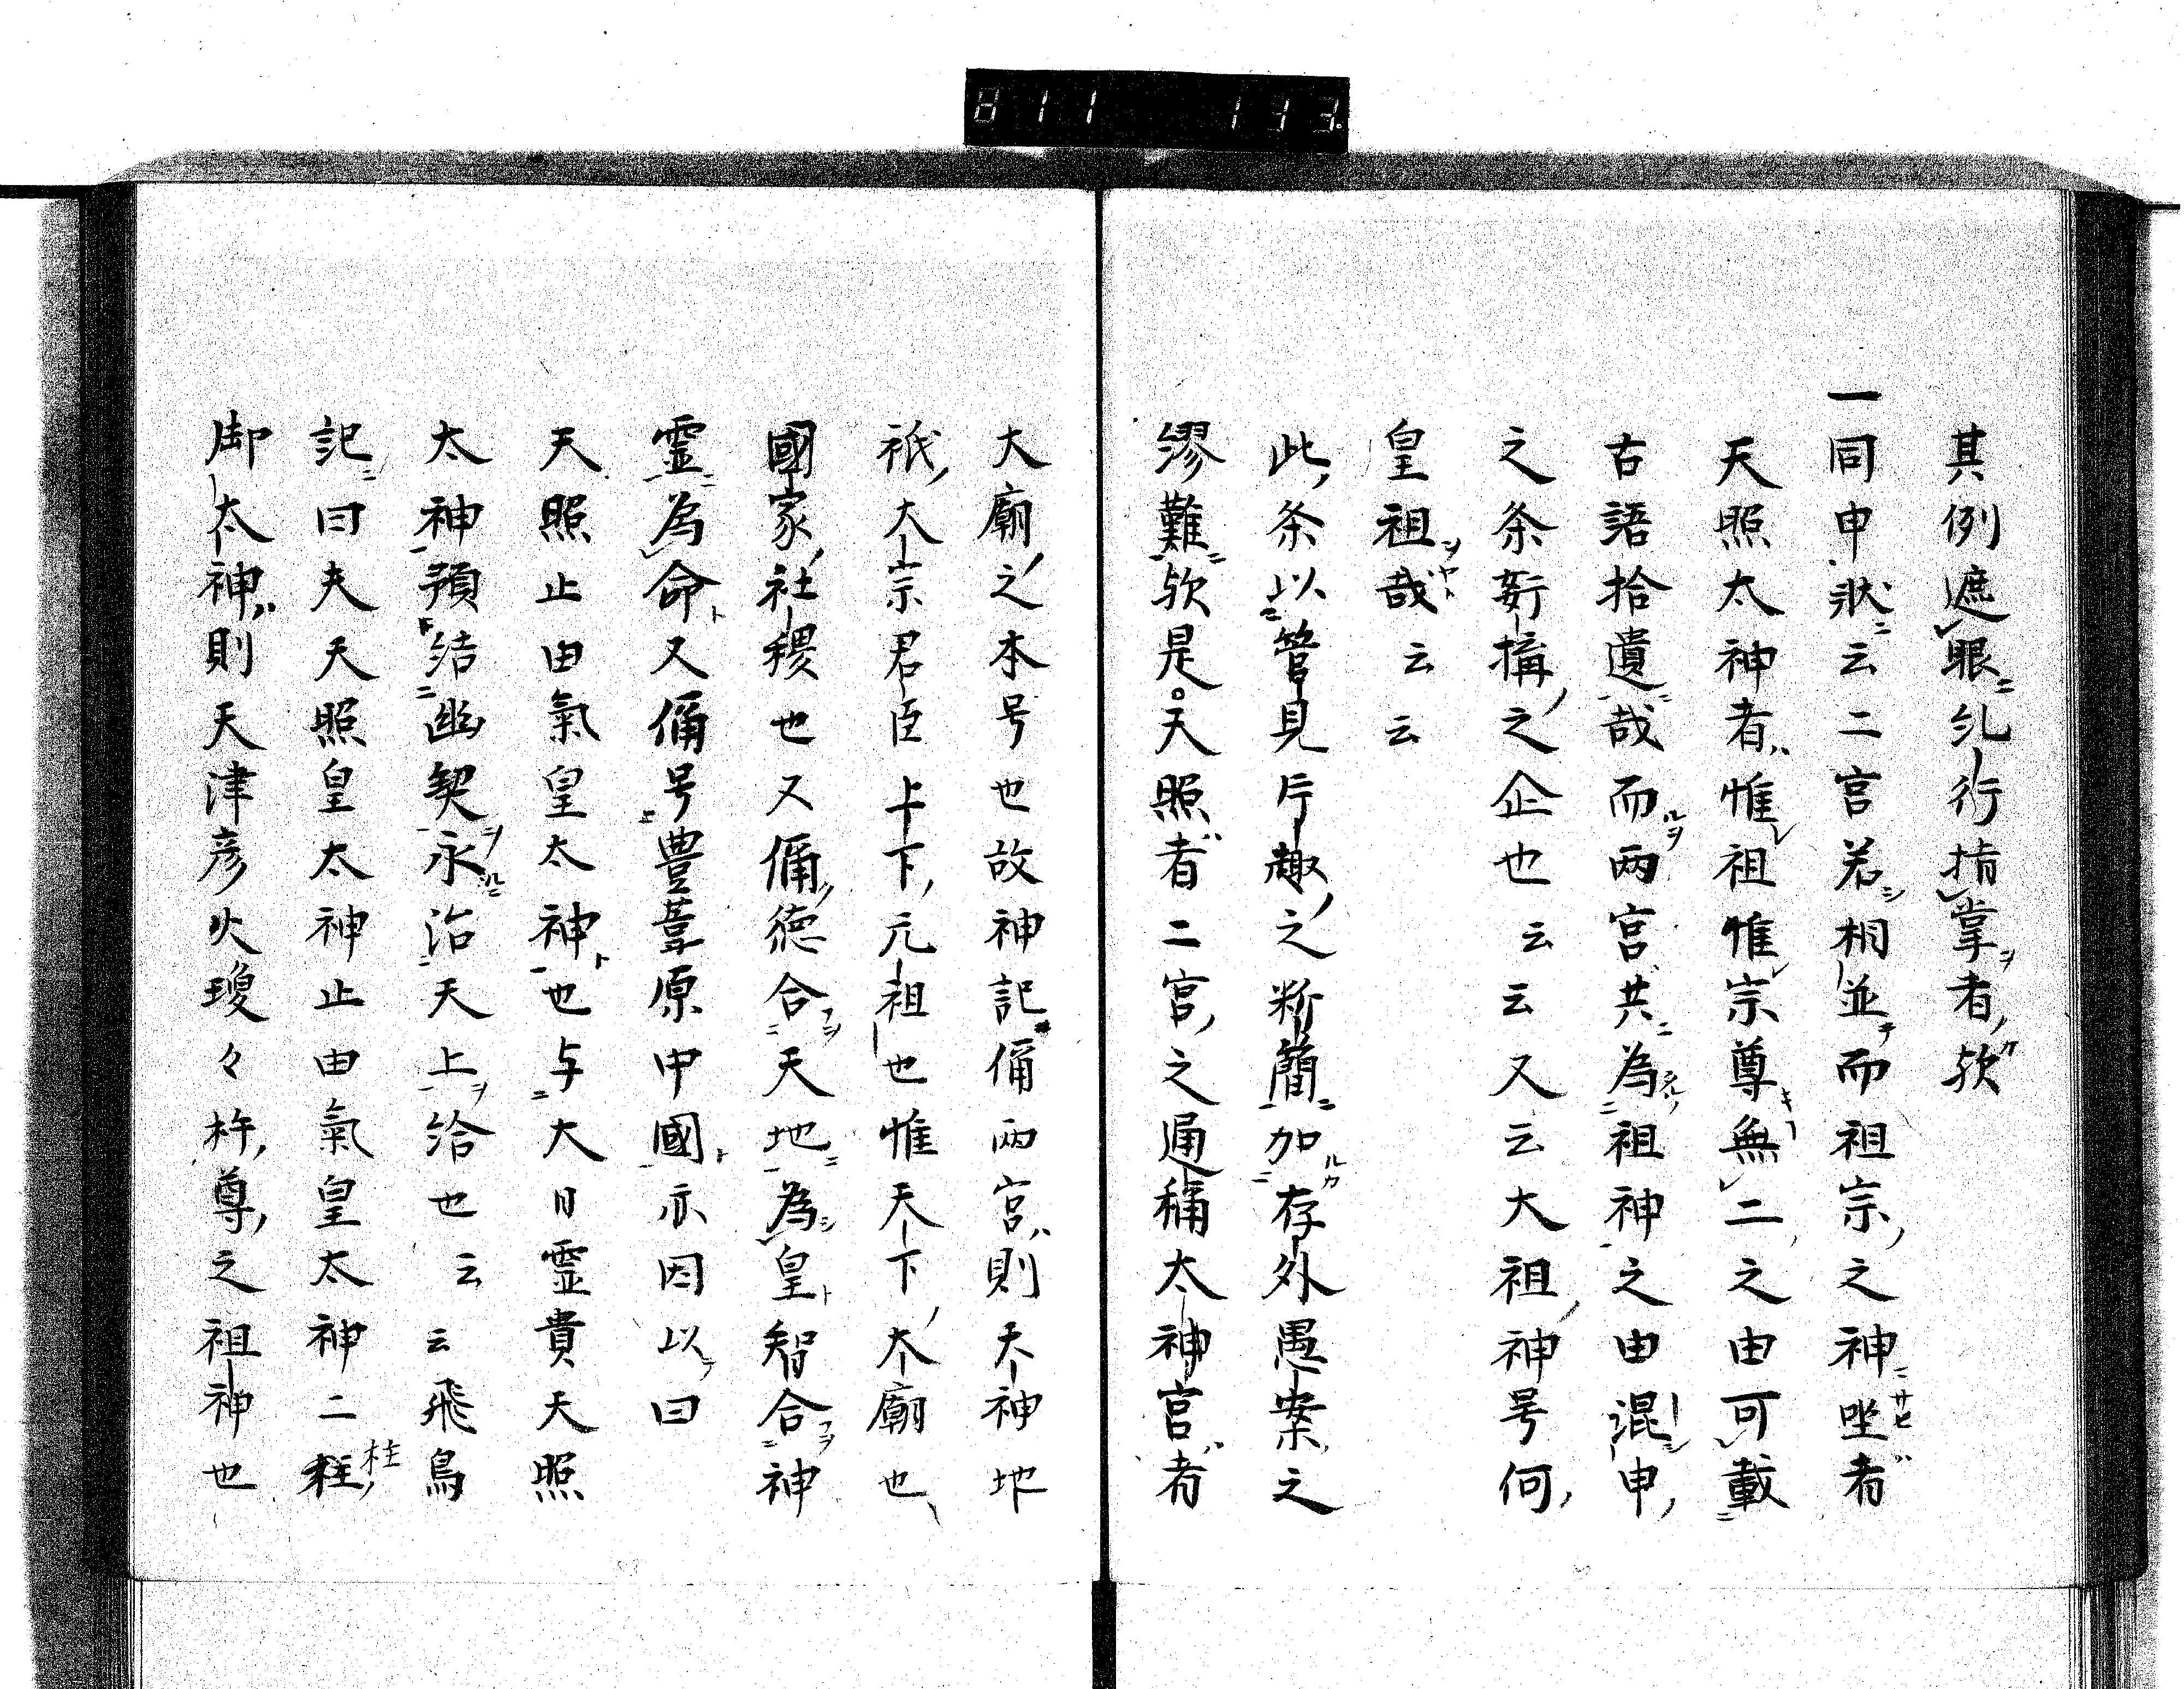 811 133
其例遮眼糺行指掌者歟
一同申状云二宮若相並而祖宗之神坐者
天照太神者惟祖惟宗尊無二之由可載
古語拾遺哉而両宮共為祖神之由混申
之条姧搆之企也云云又云大祖神号何
皇祖哉云云
此条以管見片趣之断簡加存外愚案之
謬難歟是天照者二宮之通称太神宮者
大廟之本号也故神記偁両宮則天神地
祇大宗君臣上下元祖也惟天下太廟也
國家社稷也又偁徳合天地為皇智合神
霊為命又偁号豊葦原中國亦因以曰
天照止由氣皇太神也与大日霊貴天照
太神預結幽契永治天上給也云云飛鳥
記曰夫天照皇太神止由氣皇太神二柱
御太神則天津彦火瓊々杵尊之祖神也